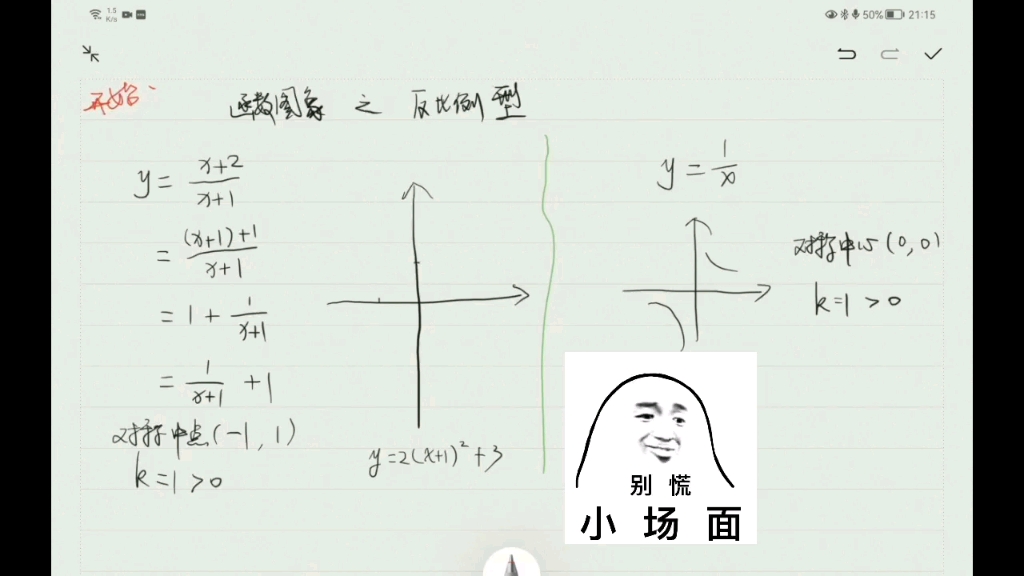 1.5
K/s
50%
21:15
开始：
函数图象 之 反比例型
y = \frac{x+2}{x+1}
= \frac{(x+1)+1}{x+1}
= 1 + \frac{1}{x+1}
= \frac{1}{x+1} + 1
对称中点(-1, 1)
k=1 >0
y=2(x+1)²+3
y = \frac{1}{x}
对称中心(0, 0)
k=1 >0
别 慌
小 场 面